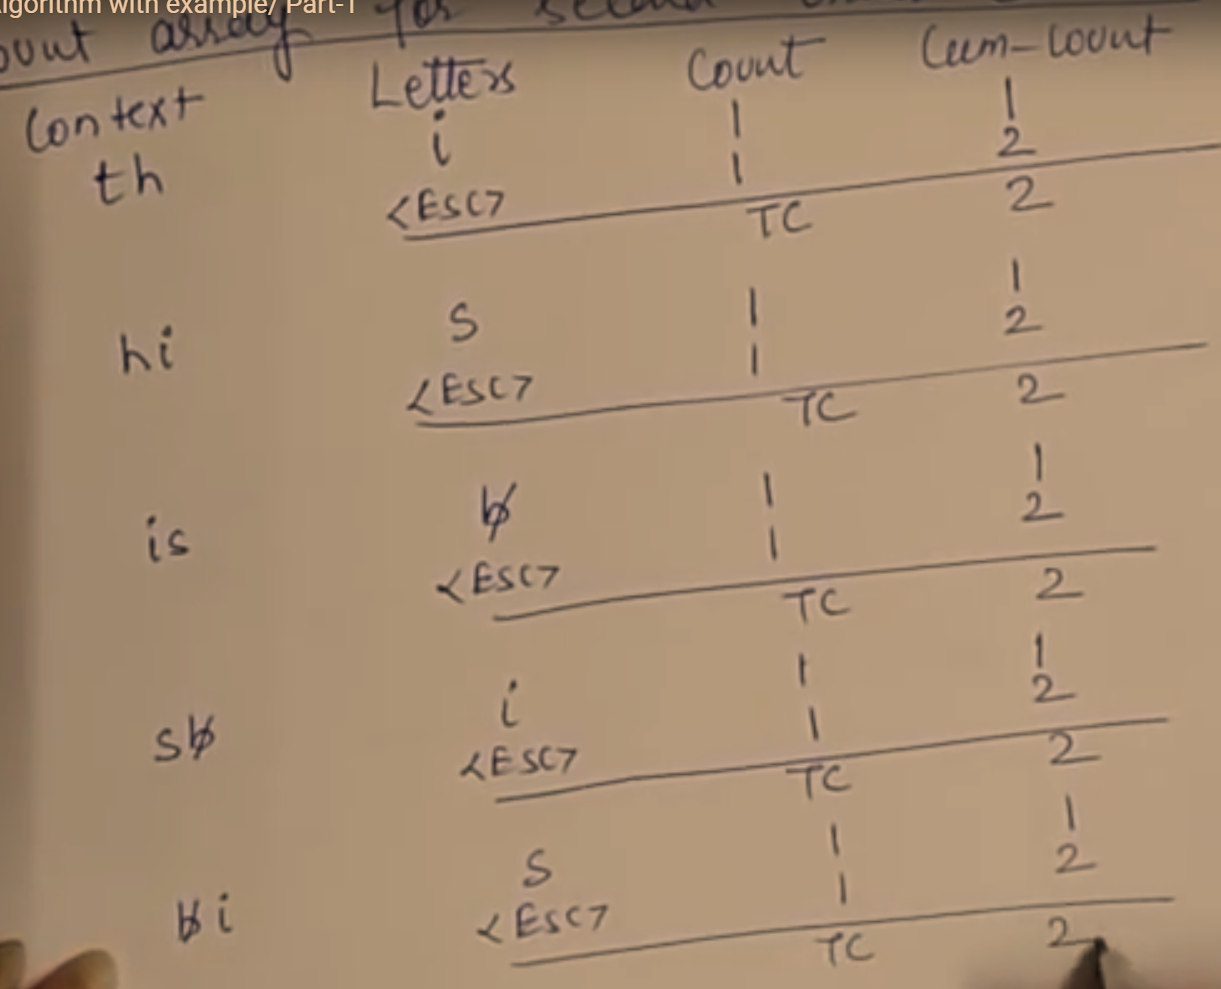 lgorithm with example/ Part-1
ount array for second
Context Letters Count Cum-Count
th i 1 1
<ESC> 1 2
TC 2
hi s 1 1
<ESC> 1 2
TC 2
is b̸ 1 1
<ESC> 1 2
TC 2
sb̸ i 1 1
<ESC> 1 2
TC 2
b̸i s 1 1
<ESC> 1 2
TC 2